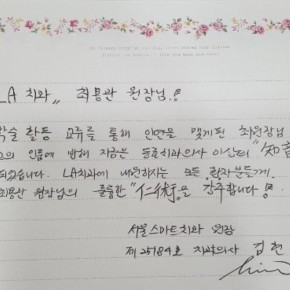 LA 치과" 최용관 원장님!
학술 활동 교류를 통해 인연을 맺게된 최원장님
그 인품에 반해 지금은 동료치과의사 이상의 "知音
되었습니다. LA치과에 내원하시는 모든 환자분들께
최용관 원장님의 훌륭한 "仁術"을 강추합니다!
서울스마트치과 원장
제 25784호 치과의사 김현